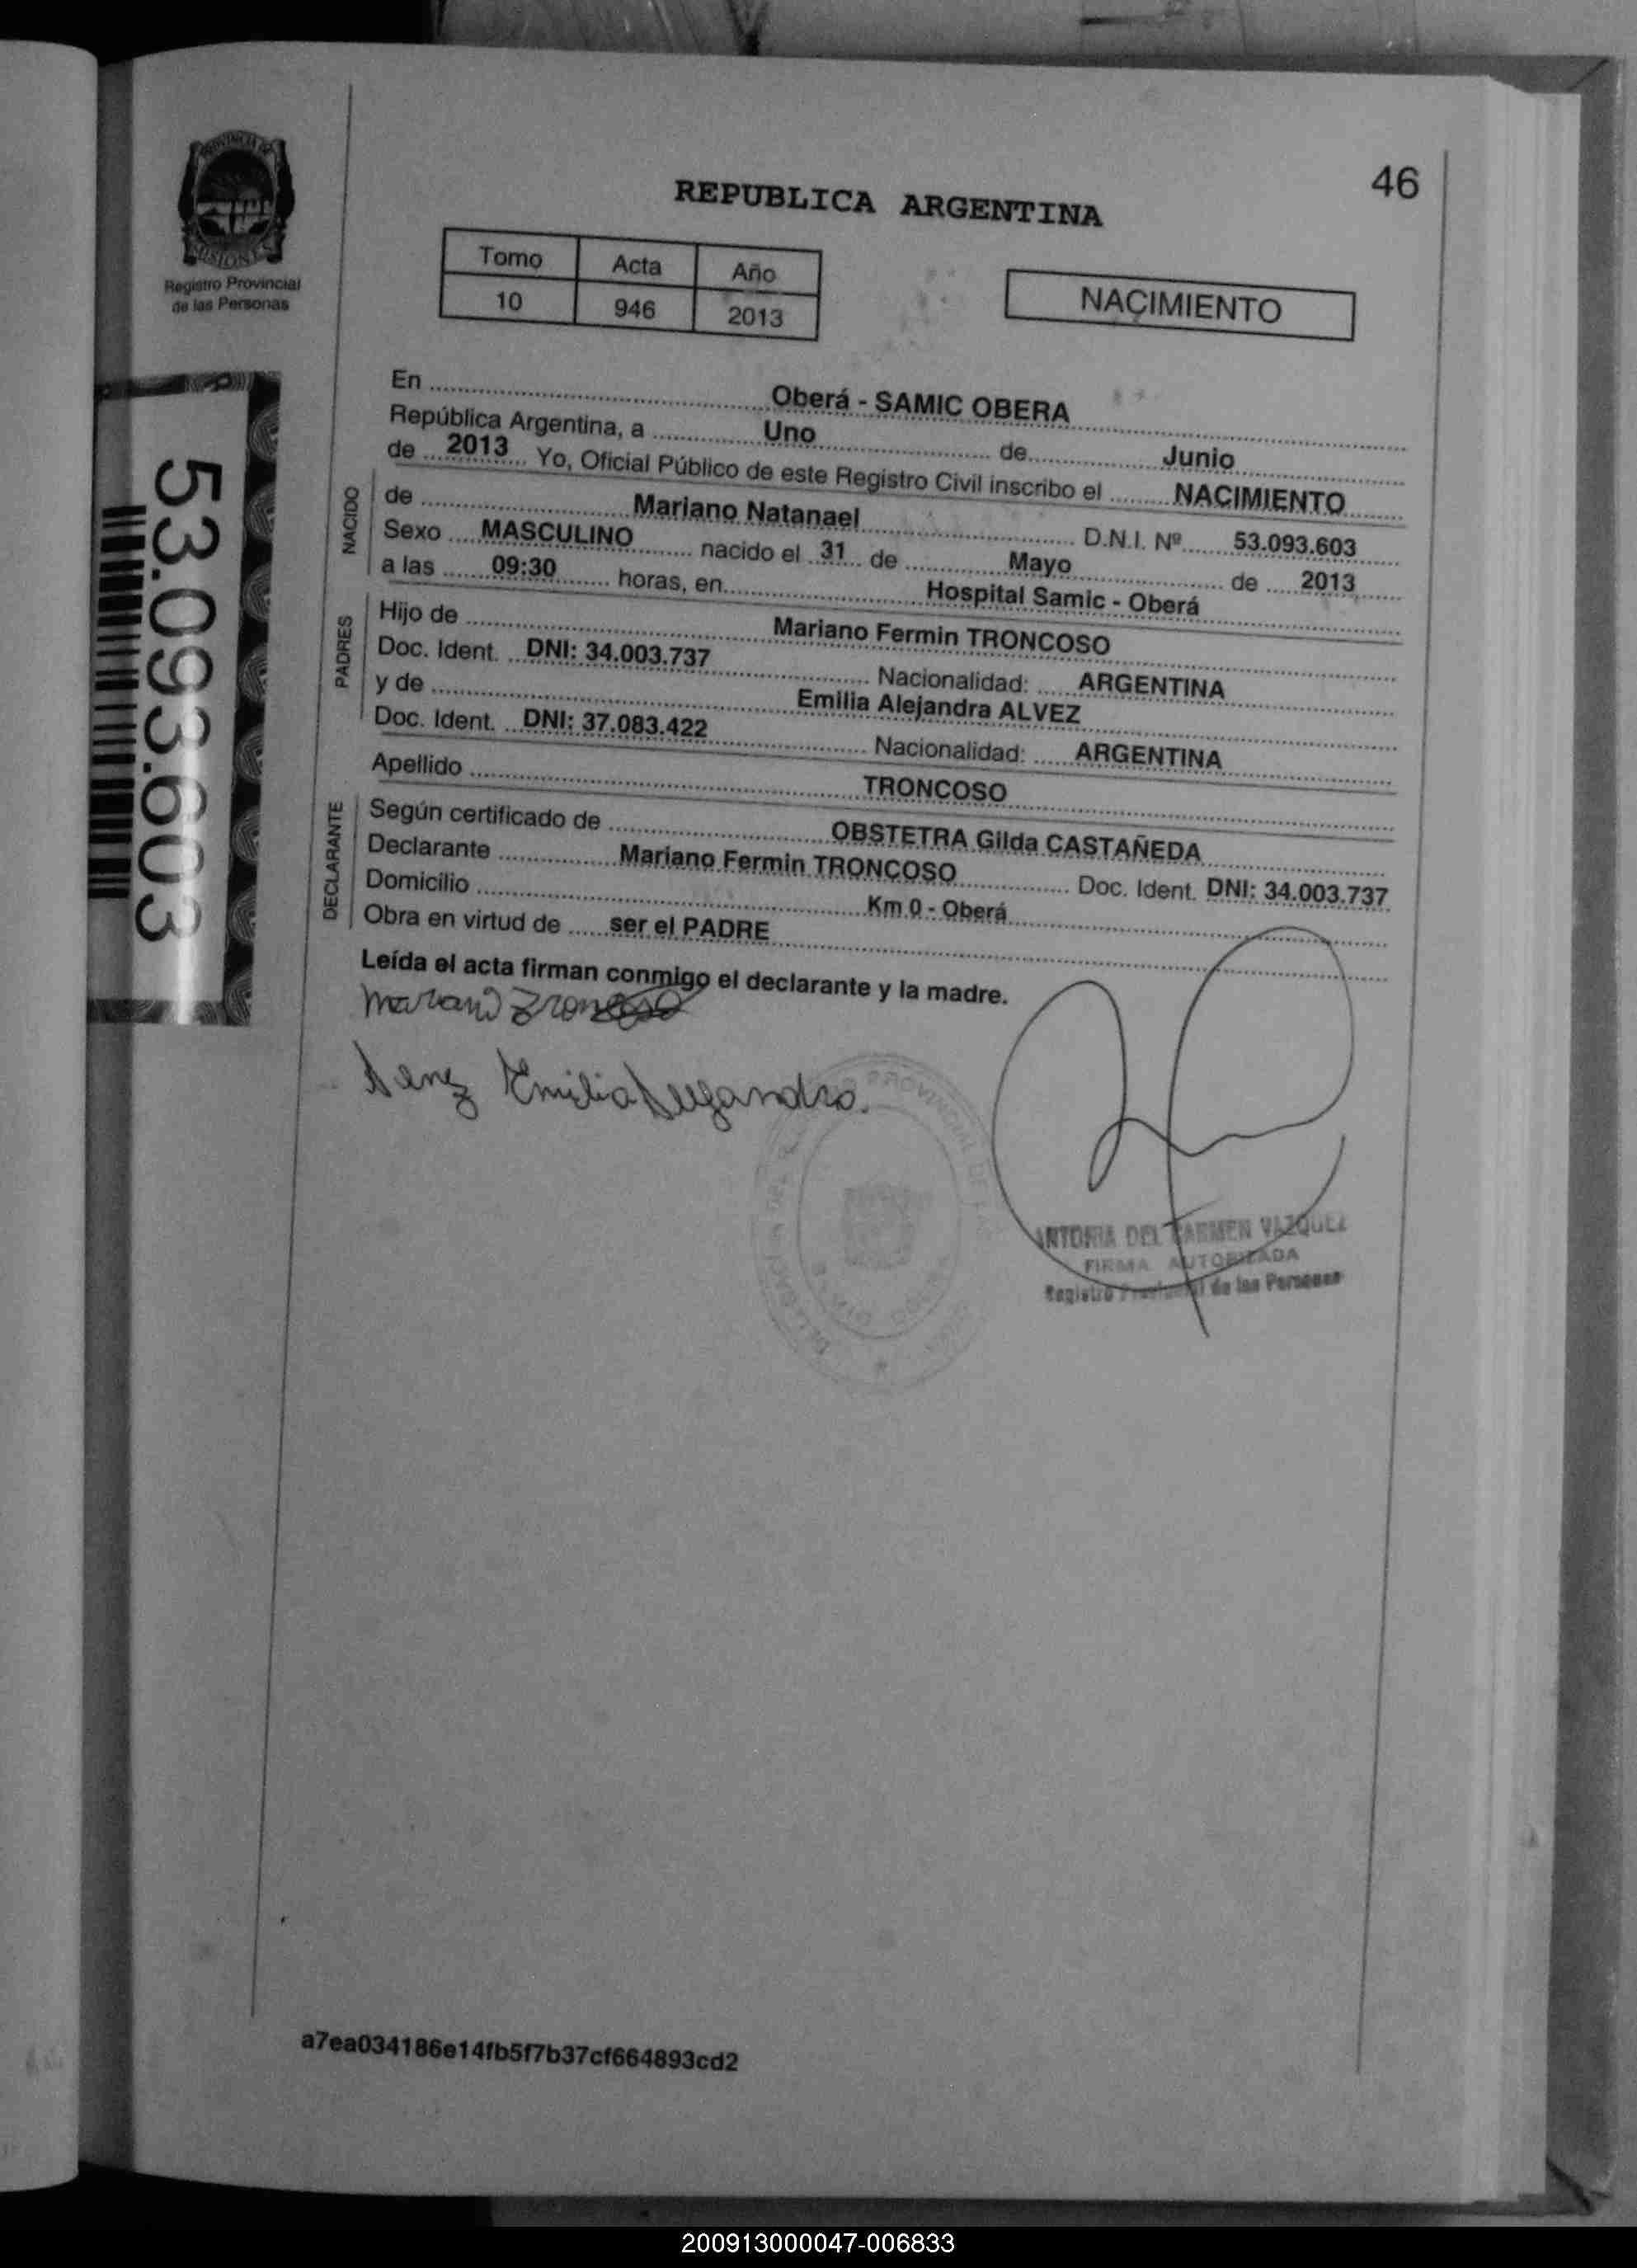 46
REPUBLICA ARGENTINA
PROVINCIA DE
MISIONES
Registro Provincial
de las Personas
Tomo Acta Año
10 946 2013
NACIMIENTO
53.093.603
En Oberá - SAMIC OBERA
República Argentina, a Uno de Junio
de 2013 Yo, Oficial Público de este Registro Civil inscribo el NACIMIENTO
NACIDO
de Mariano Natanael D.N.I. Nº 53.093.603
Sexo MASCULINO nacido el 31 de Mayo de 2013
a las 09:30 horas, en Hospital Samic - Oberá
PADRES
Hijo de Mariano Fermin TRONCOSO
Doc. Ident. DNI: 34.003.737 Nacionalidad: ARGENTINA
y de Emilia Alejandra ALVEZ
Doc. Ident. DNI: 37.083.422 Nacionalidad: ARGENTINA
Apellido TRONCOSO
DECLARANTE
Según certificado de OBSTETRA Gilda CASTAÑEDA
Declarante Mariano Fermin TRONCOSO Doc. Ident. DNI: 34.003.737
Domicilio Km 0 - Oberá
Obra en virtud de ser el PADRE
Leída el acta firman conmigo el declarante y la madre.
Mariano Troncoso
Emilia Alejandra.
PROVINCIAL DE
DEL CARMEN VAZQUEZ
FIRMA AUTORIZADA
Registro Provincial de las Personas
a7ea034186e14fb5f7b37cf664893cd2
200913000047-006833